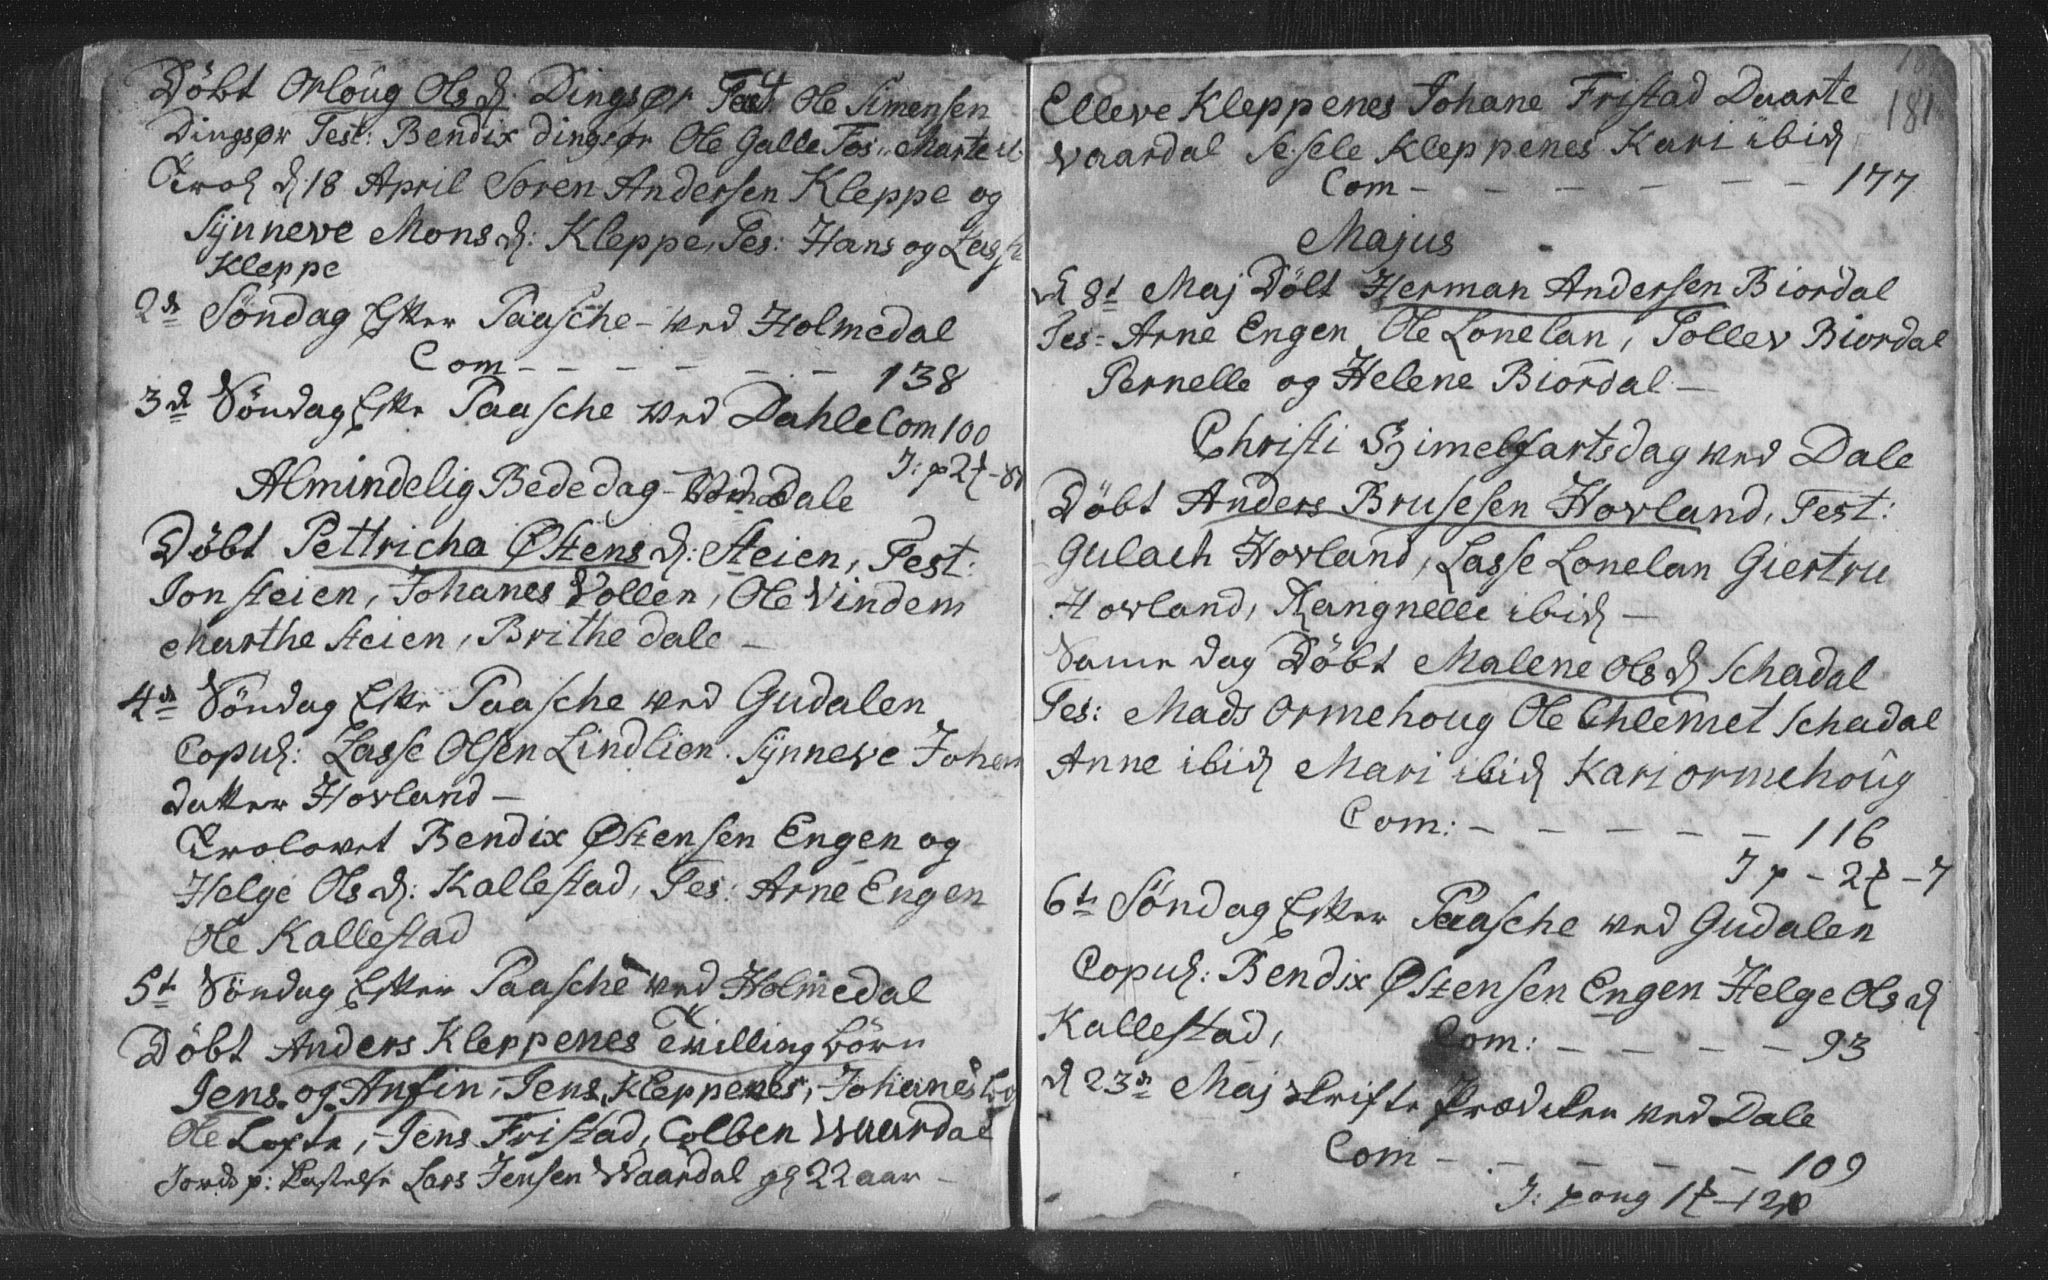 Döbt Orloug Ols d. Dingsør Test. Ole Simensen
Dingsør Test: Bendix dingsør Ole Galle Fos Marte
Trol d. 18 April Soren Andersen Kleppe og
Sÿnneve Mons d: Kleppe, Tes: Hans og Lasse
Kleppe
2d Söndag Efter Paasche - ved Holmedal
Com - - - - - - 138
3d Söndag Efter Paasche ved Dahle Com 100
Almindelig Bededag - Dale
Döbt Pettricha Østens d: Steien, Test:
Jon steien, Johanes Vollen, Ole Vindem
Marthe steien, Brithe dale -
4d Söndag Efter Paasche ved Gudalen
Copul: Lasse Olsen Lindlien. Sÿnneve Johan
datter Hovland -
Trolovet Bendix Østensen Engen og
Helge Ols d: Kallestad, Tes: Arne Engen
Ole Kallestad
5t Söndag Efter Paasche ved Holmedal
Döbt Anders Kleppenes Tvilling börn
Jens og Anfin, Jens Kleppenes, Johanes
Ole Lofte, Jens Fristad, Colben Waardal
Jords p: Lars Jensen Waardal 22 aar -
181
Elleve Kleppenes Johane Fristad Daarte
Vaardal Sesele Kleppenes Kari ibid
Com - - - - - - 177
Majus
d 8t Maj Döbt Herman Andersen Biordal
Tes: Arne Engen Ole Lonelan, Tollev Biordal
Pernelle og Helene Biordal -
Christi Himelfartsdag ved Dale
Döbt Anders Brusesen Hovland, Test:
Gulach Hovland, Lasse Lonelan Giertru
Hovland, Rangnelle ibid -
Same dag Döbt Malene Ols d Schadal
Tes: Mads Ormehoug Ole Chlemet Schadal
Anne ibid Mari ibid Kari Ormehoûg
Com: - - - - - 116
6t Söndag Efter Paasche ved Gudalen
Copul: Bendix Østensen Engen Helge Ols d
Kallestad, Com: - - - - - 93
d 23d Maj Skrifte Prædiken ved Dale
Com - - - - - - 109